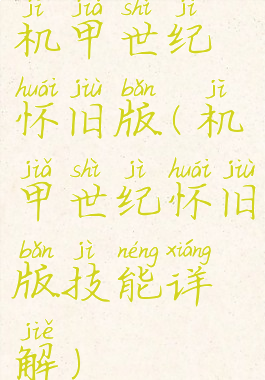 jī jiǎ shì jì
机甲世纪
huái jiù bǎn jī
怀旧版(机
jiǎ shì jì huái jiù
甲世纪怀旧
bǎn jì néng xiáng
版技能详
jiě
解)